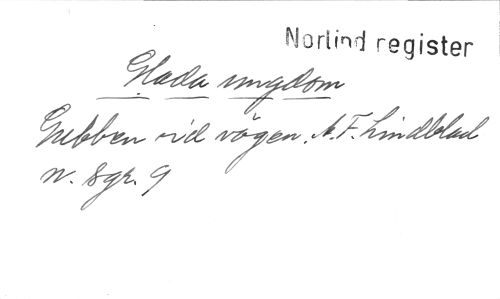 Norlind register
Glada ungdom
Gubben vid vägen. A. F. Lindblad
N. Sgr. 9